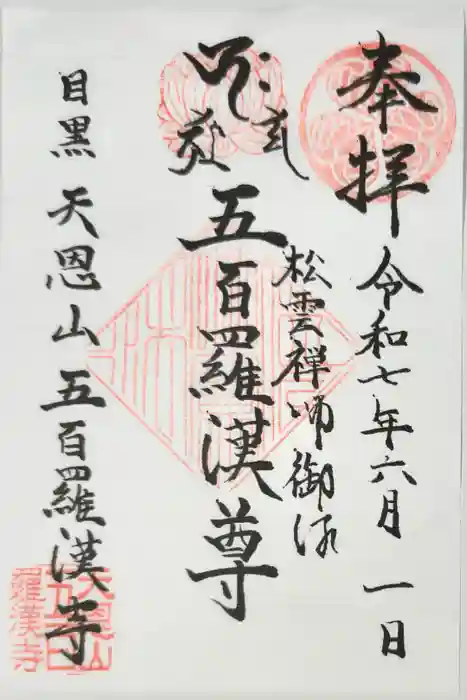 奉拝
令和七年六月一日
松雲禅師御作
五百羅漢尊
目黒 天恩山 五百羅漢寺
天恩山
五百
羅漢寺